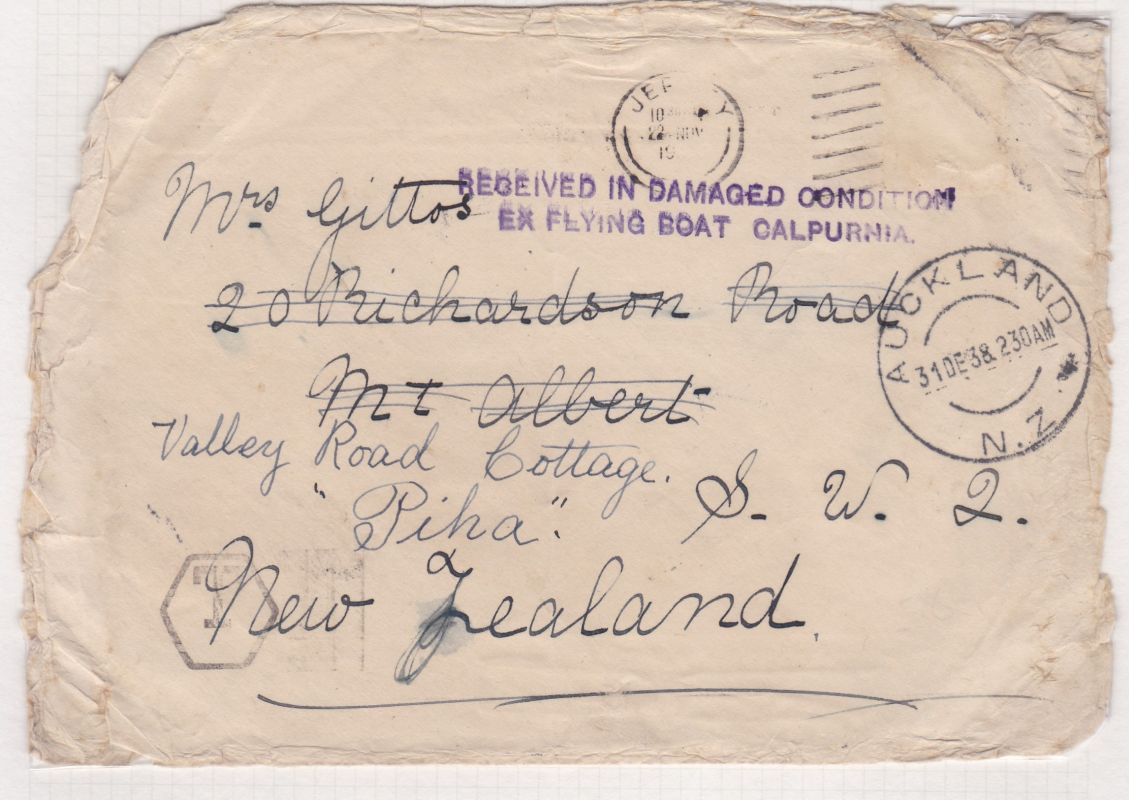 JERSEY
10 30
22 NOV
19
Mrs. Gittos
RECEIVED IN DAMAGED CONDITION
EX FLYING BOAT CALPURNIA.
20 Richardson Road
AUCKLAND
31 DE 38 230AM
N.Z.
Mt Albert
Valley Road Cottage.
S. W. 2.
"Piha".
T
New Zealand.